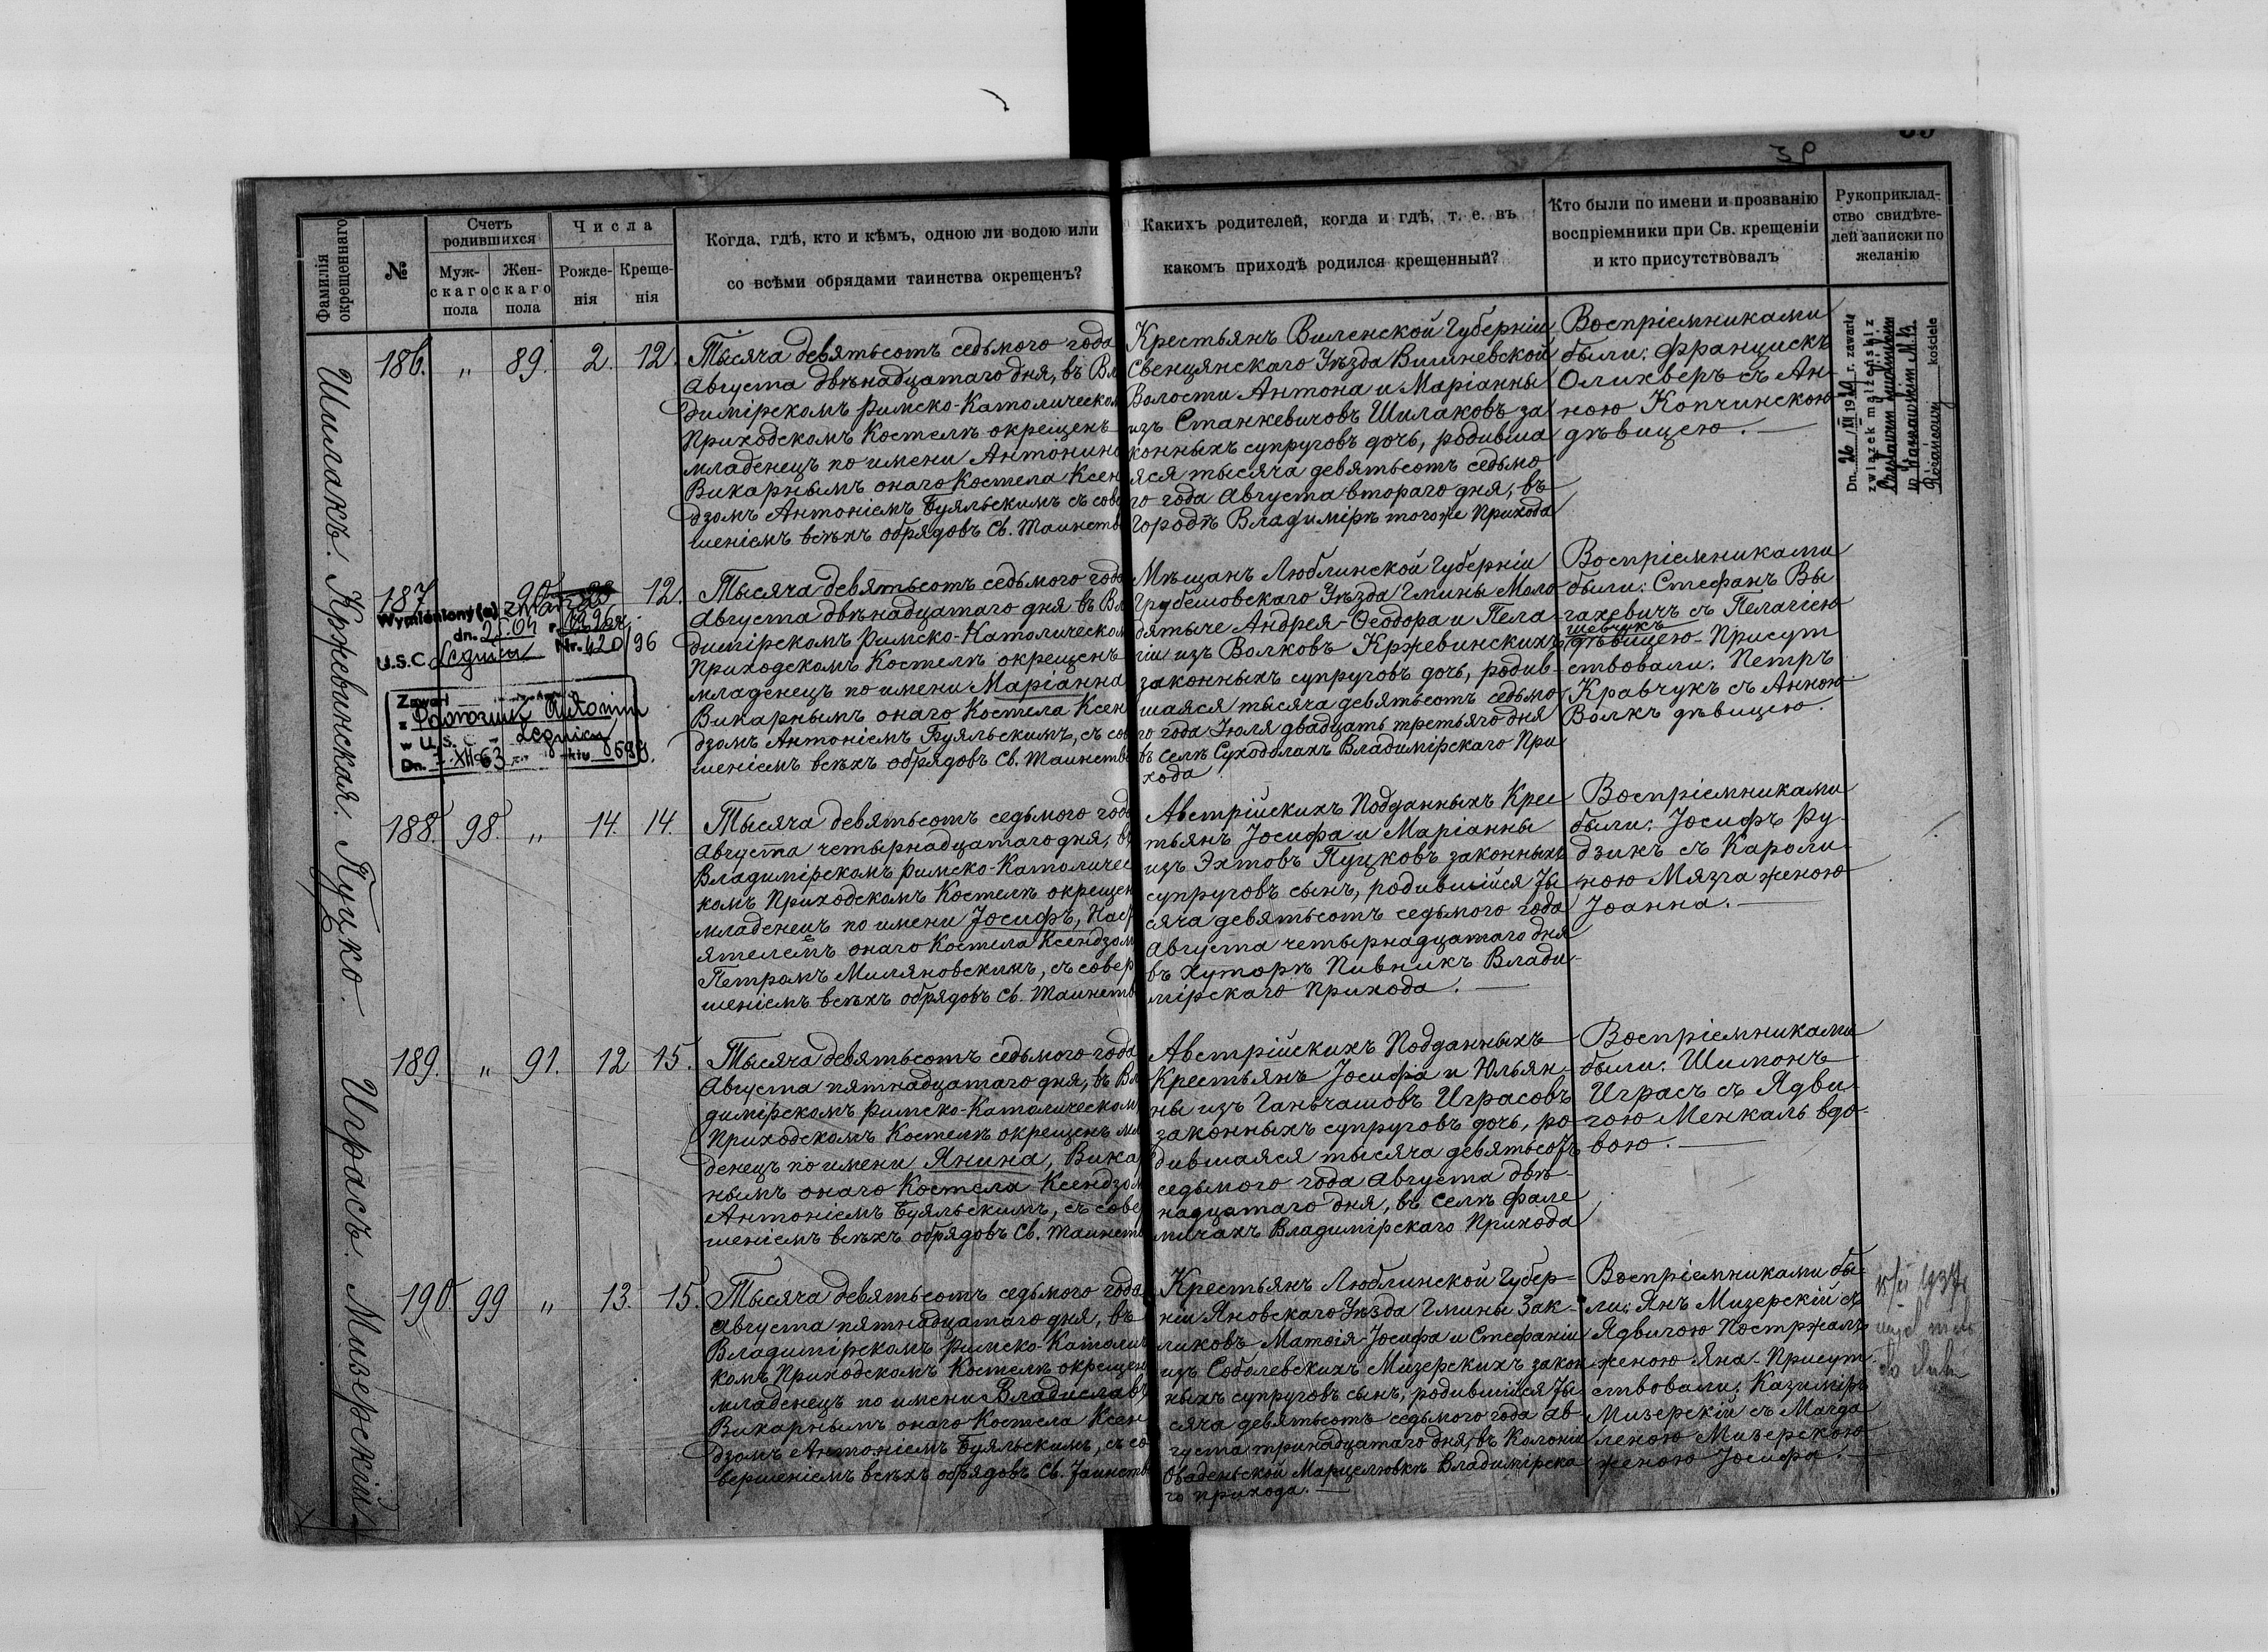 39
Фамилія окрещеннаго
№
Счетъ родившихся
Муж-
скаго
пола
Жен-
скаго
пола
Числа
Рожде-
нія
Креще-
нія
Когда, гдѣ, кто и кѣмъ, одною ли водою или
со всѣми обрядами таинства окрещенъ?
Каких​ъ родителей, когда и гдѣ, т. е. въ
какомъ приходѣ родился крещенный?
Кто были по имени и прозванію
воспріемники при Св. крещеніи
и кто присутствовалъ
Рукоприклад-
ство свидѣте-
лей записки по
желанію
Шилакъ.
186. „ 89. 2. 12.
Тысяча девятьсотъ седьмого года
Августа двѣнадцатаго дня, въ Вла
димірскомъ Римско-Католическом
Приходскомъ Костелѣ окрещенъ
младенецъ по имени Антонина
Викарнымъ онаго Костела Ксен
дзомъ Антоніемъ Буяльскимъ съ сове
шеніемъ всѣхъ обрядовъ Св. Таинств
Крестьянъ Виленской Губерніи
Свенцянскаго Уѣзда Вишневской
Волости Антона и Маріанны
изъ Станкевичовъ Шилаковъ за
конныхъ супруговъ дочь, родивша
яся тысяча девятьсотъ седьмо
го года Августа втораго дня, въ
Городѣ Владимірѣ тогоже Прихода
Воспріемниками
были: Францискъ
Оликверъ съ Ан-
ною Копчинскою
дѣвицею.
Dn. 26/XII 19 r. zawarła
związek małżeński z
w Warszawskim
Różańcowy kościele
Кржевинская.
187. 90 12.
Wymieniony(a) zmarł
dn. 21.04 r. 1996
U.S.C. Legnica Nr. 420/96
Zawarł
z Antonim
w U.S.C. - Legnicy
Dn. XII 63 aktu 680.
Тысяча девятьсотъ седьмого года
Августа двѣнадцатаго дня въ Вла
димірскомъ Римско-Католическом
Приходскомъ Костелѣ окрещенъ
младенецъ по имени Маріанна
Викарнымъ онаго Костела Ксен
дзомъ Антоніемъ Буяльскимъ, съ сов
шеніемъ всѣхъ обрядовъ Св. Таинств
Мѣщанъ Люблинской Губерніи
Грубешовскаго Уѣзда Гмины Моло
дятыче Андрея-Ѳеодора и Пела
гіи изъ Волковъ Кржевинскихъ
законныхъ супруговъ дочь, родив-
шаяся тысяча девятьсотъ седьмо
го года Іюля двадцать третьяго дня
въ Селѣ Суходолахъ Владимірскаго При
хода
Воспріемниками
были: Стефанъ Вы
гахевичъ съ Пелагіею
Шевчукъ
дѣвицею - Присут
ствовали: Петръ
Кравчукъ съ Анною
Волкъ дѣвицею.
Пуцко.
188. 98. „ 14. 14.
Тысяча девятьсотъ седьмого года
Августа четырнадцатаго дня, въ
Владимірскомъ Римско-Католичес
комъ Приходскомъ Костелѣ окрещен
младенецъ по имени Іосифъ, Наст
ятелемъ онаго Костела Ксендзом
Петромъ Миляновскимъ, съ совер
шеніемъ всѣхъ обрядовъ Св. Таинств
Австрійскихъ Подданныхъ Крес
тьянъ Іосифа и Маріанны
изъ Эхтовъ Пуцковъ законныхъ
супруговъ сынъ, родившійся Ты
сяча девятьсотъ седьмого года
Августа четырнадцатаго дня
въ хуторѣ Пивникъ Влади-
мірскаго Прихода.
Воспріемниками
были: Іосифъ Ру-
дзикъ съ Кароли-
ною Мязга женою
Іоанна.
Играсъ.
189. „ 91. 12 15.
Тысяча девятьсотъ седьмого года
Августа пятнадцатаго дня, въ Вла
димірскомъ Римско-Католическом
Приходскомъ Костелѣ окрещенъ мла
денецъ по имени Янина, Викар
нымъ онаго Костела Ксендзом
Антоніемъ Буяльскимъ, съ сове
шеніемъ всѣхъ обрядовъ Св. Таинств
Австрійскихъ Подданныхъ
Крестьянъ Іосифа и Юльян-
ны изъ Ганьчашовъ Играсовъ
законныхъ супруговъ дочь, ро-
дившаяся тысяча девятьсотъ
седьмого года Августа двѣ-
надцатаго дня, въ Селѣ Фале
мичахъ Владимірскаго Прихода
Воспріемниками
были: Шимонъ
Играсъ съ Ядви-
гою Менкаль вдо-
вою.
Мизерскій
190. 99 „ 13. 15.
Тысяча девятьсотъ седьмого года
Августа пятнадцатаго дня, въ
Владимірскомъ Римско-Католич
комъ Приходскомъ Костелѣ окрещен
младенецъ по имени Владиславъ
Викарнымъ онаго Костела Ксен
дзомъ Антоніемъ Буяльскимъ, съ со-
вершеніемъ всѣхъ обрядовъ Св. Таинств
Крестьянъ Люблинской Губер-
ніи Яновскаго Уѣзда Гмины Зак-
ликовъ Матѳія-Іосифа и Стефаніи
изъ Соболевскихъ Мизерскихъ закон
ныхъ супруговъ сынъ, родившійся Ты
сяча девятьсотъ седьмого года Ав
густа тринадцатаго дня, въ Колоніи
Оваденьской Марцелювкѣ Владимірска
го прихода.
Воспріемниками бы-
ли: Янъ Мизерскій съ
Ядвигою Постржалъ
женою Яна - Присут
ствовали: Казиміръ
Мизерскій съ Магда
леною Мизерскою
женою Іосифа.
1937